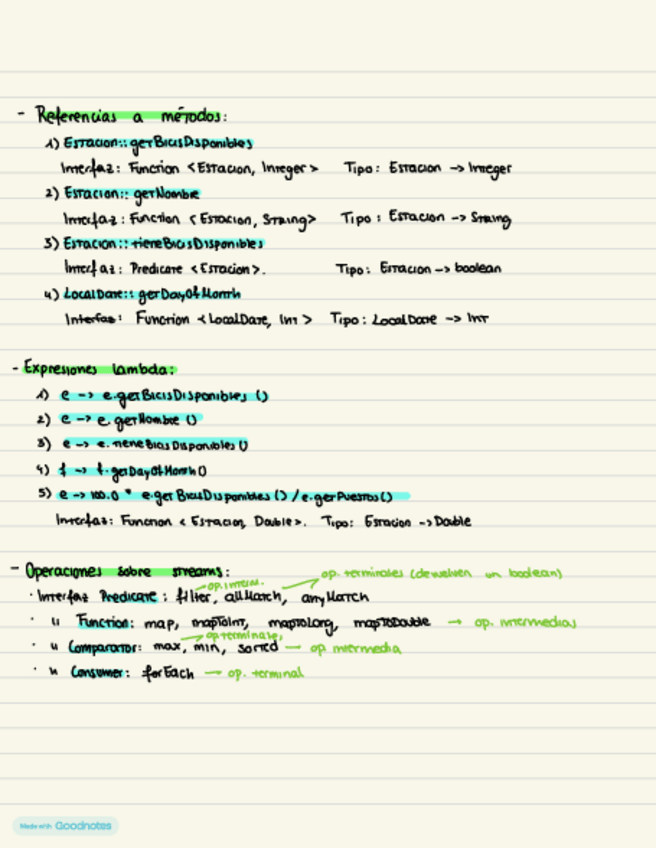 - Referencias a métodos:
1) Estacion::getBicisDisponibles
Interfaz: Function <Estacion, Integer> Tipo: Estacion -> Integer
2) Estacion::getNombre
Interfaz: Function <Estacion, String> Tipo: Estacion -> String
3) Estacion::tieneBicisDisponibles
Interfaz: Predicate <Estacion>. Tipo: Estacion -> boolean
4) LocalDate::getDayOfMonth
Interfaz: Function <LocalDate, Int> Tipo: LocalDate -> Int
- Expresiones lambda:
1) e -> e.getBicisDisponibles ()
2) e -> e.getNombre ()
3) e -> e.tieneBicisDisponibles ()
4) f -> f.getDayOfMonth ()
5) e -> 100.0 * e.getBicisDisponibles () / e.getPuestos ()
Interfaz: Function <Estacion, Double>. Tipo: Estacion -> Double
- Operaciones sobre streams:
op. interm. op. terminales (devuelven un boolean)
· Interfaz Predicate: filter, allMatch, anyMatch
· " Function: map, mapToInt, mapToLong, mapToDouble -> op. intermedias
op terminales
· " Comparator: max, min, sorted -> op intermedia
· " Consumer: forEach -> op. terminal
Made with Goodnotes